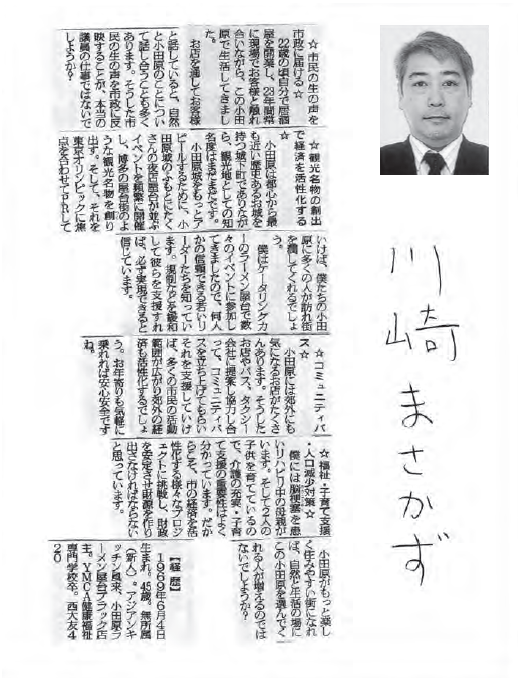 川崎まさかず
☆市民の生の声を
市政に届ける☆
22歳の頃自分で居酒
屋を開業し、23年間常
に現場でお客様と触れ
合いながら、この小田
原で生活してきまし
た。
お店を通してお客様
と話していると、自然
と小田原のことについ
て話し合うことも多く
あります。そうした市
民の生の声を市政に反
映することが、本当の
議員の仕事ではないで
しょうか？
☆観光名物の創出
で経済を活性化する
☆
小田原は都心から最
も近い歴史あるお城を
持つ城下町でありなが
ら、観光地としての知
名度はまだまだです。
小田原城をもっとア
ピールするために、小
田原城のふもとにたく
さんの夜店屋台が並ぶ
イベントを頻繁に開催
し、博多の屋台街のよ
うな観光名物を創り
出す。そして、それを
東京オリンピックに焦
点を合わせてPRして
いけば、僕たちの小田
原に多くの人が訪れ街
を潤してくれるでしょ
う。
僕はケータリングカ
ーのラーメン屋台で数
々のイベントに参加し
てきましたので、何人
かの信頼できる若いリ
ーダーたちを知ってい
ます。規制などを緩和
して彼らを支援すれ
ば、必ず実現できると
信じています。
☆コミュニティバ
ス☆
小田原には郊外にも
気になるお店がたくさ
んあります。そうした
お店やバス、タクシー
会社に提案し協力し合
って、コミュニティバ
スを立ち上げてもらい
それを支援していけ
ば、多くの市民の活動
範囲が広がり郊外の経
済も活性化するでしょ
う。お年寄りも気軽に
乗れれば安心安全です
ね。
☆福祉・子育て支援
・人口減少対策☆
僕には脳梗塞を患
いリハビリ中の母親が
います。そして2人の
子供を育てているの
で、介護の充実・子育
て支援の重要性はよく
分かっています。だか
らこそ、市の経済を活
性化する様々なプロジ
ェクトに挑戦し、財政
を安定させ財源を作り
出さなければならない
と思っています。
小田原がもっと楽し
く住みやすい街になれ
ば、自然と生活の場に
この小田原を選んでく
れる人が増えるのでは
ないでしょうか？
【経歴】
1969年6月4日
生まれ。45歳。無所属
（新人）。アジアンキ
ッチン風来、小田原ラ
ーメン屋台ブラック店
主。YMCA健康福祉
専門学校卒。西大友4
20